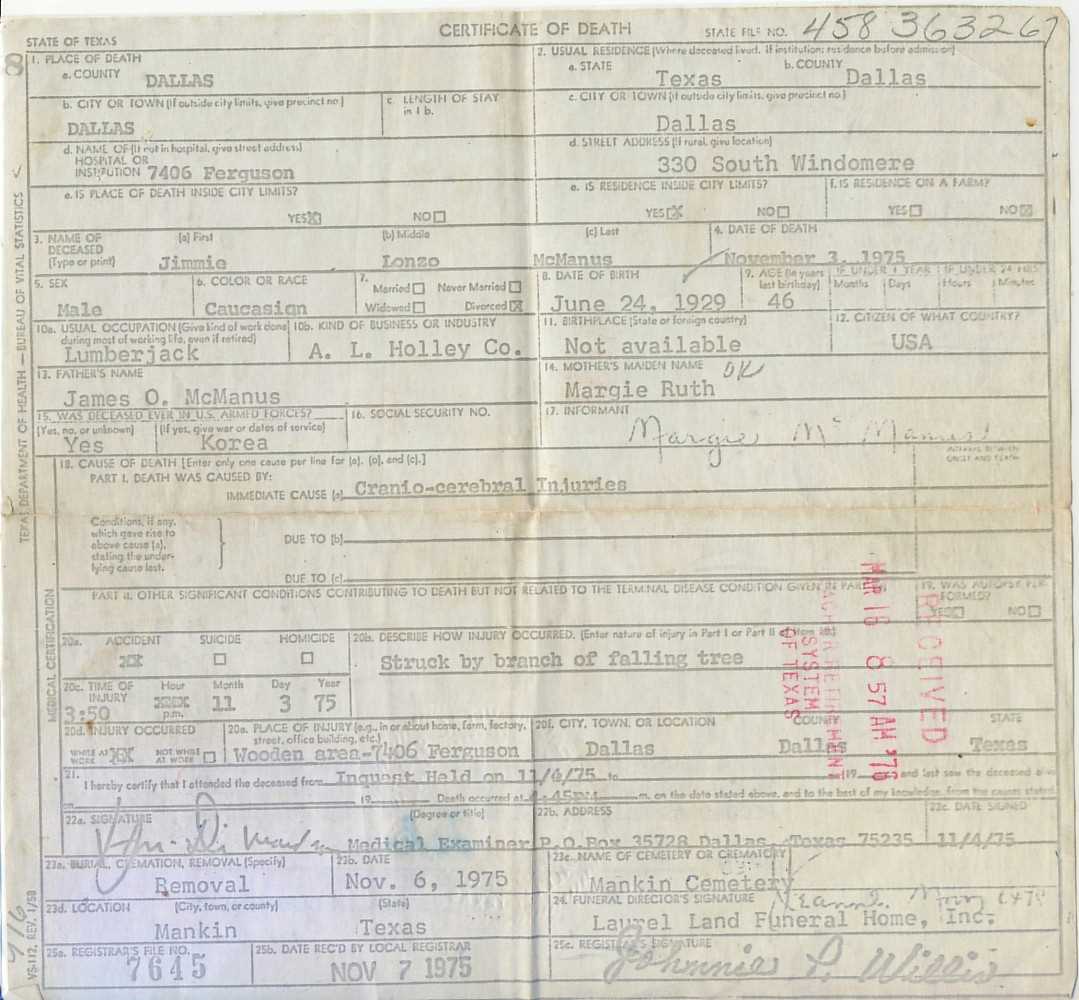 CERTIFICATE OF DEATH
STATE OF TEXAS
STATE FILE NO. 458 363326
8
1. PLACE OF DEATH
a. COUNTY DALLAS
b. CITY OR TOWN (If outside city limits, give precinct no.)
DALLAS
c. LENGTH OF STAY
in 1 b.
d. NAME OF (If not in hospital, give street address)
HOSPITAL OR
INSTITUTION 7406 Ferguson
e. IS PLACE OF DEATH INSIDE CITY LIMITS?
YES X NO
2. USUAL RESIDENCE (Where deceased lived. If institution: residence before admission)
a. STATE Texas b. COUNTY Dallas
c. CITY OR TOWN (If outside city limits, give precinct no.)
Dallas
d. STREET ADDRESS (If rural, give location)
330 South Windomere
e. IS RESIDENCE INSIDE CITY LIMITS?
YES X NO
f. IS RESIDENCE ON A FARM?
YES NO X
3. NAME OF
DECEASED
(Type or print)
(a) First (b) Middle (c) Last
Jimmie Lonzo McManus
4. DATE OF DEATH
November 3, 1975
5. SEX
Male
6. COLOR OR RACE
Caucasign
7.
Married Never Married
Widowed Divorced X
8. DATE OF BIRTH
June 24, 1929
9. AGE (In years
last birthday)
46
IF UNDER 1 YEAR
Months Days
IF UNDER 24 HRS
Hours Minutes
10a. USUAL OCCUPATION (Give kind of work done
during most of working life, even if retired)
Lumberjack
10b. KIND OF BUSINESS OR INDUSTRY
A. L. Holley Co.
11. BIRTHPLACE (State or foreign country)
Not available
12. CITIZEN OF WHAT COUNTRY?
USA
13. FATHER'S NAME
James O. McManus
14. MOTHER'S MAIDEN NAME OK
Margie Ruth
15. WAS DECEASED EVER IN U.S. ARMED FORCES?
(Yes, no, or unknown) (If yes, give war or dates of service)
Yes Korea
16. SOCIAL SECURITY NO.
17. INFORMANT
Margie McManus
INTERVAL BETWEEN
ONSET AND DEATH
18. CAUSE OF DEATH [Enter only one cause per line for (a), (b), and (c).]
PART I. DEATH WAS CAUSED BY:
IMMEDIATE CAUSE (a) Cranio-cerebral Injuries
Conditions, if any,
which gave rise to
above cause (a),
stating the under-
lying cause last.
DUE TO (b)
DUE TO (c)
PART II. OTHER SIGNIFICANT CONDITIONS CONTRIBUTING TO DEATH BUT NOT RELATED TO THE TERMINAL DISEASE CONDITION GIVEN IN PART
19. WAS AUTOPSY PER-
FORMED?
YES NO
20a. ACCIDENT SUICIDE HOMICIDE
XX
20b. DESCRIBE HOW INJURY OCCURRED. (Enter nature of injury in Part I or Part II of Item 18.)
Struck by branch of falling tree
20c. TIME OF
INJURY
Hour Month Day Year
3:50 XXX p.m. 11 3 75
20d. INJURY OCCURRED
WHILE AT WORK XX NOT WHILE AT WORK
20e. PLACE OF INJURY (e.g., in or about home, farm, factory,
street, office building, etc.)
Wooden area-7406 Ferguson
20f. CITY, TOWN, OR LOCATION COUNTY STATE
Dallas Dallas Texas
21.
I hereby certify that I attended the deceased from Inquest Held on 11/4/75 to 19 and last saw the deceased alive
19 Death occurred at :45PM m. on the date stated above, and to the best of my knowledge, from the causes stated.
22a. SIGNATURE (Degree or title)
Medical Examiner
22b. ADDRESS
P.O.Box 35728 Dallas, Texas 75235
22c. DATE SIGNED
11/4/75
23a. BURIAL, CREMATION, REMOVAL (Specify)
Removal
23b. DATE
Nov. 6, 1975
23c. NAME OF CEMETERY OR CREMATORY
Mankin Cemetery
23d. LOCATION (City, town, or county) (State)
Mankin Texas
24. FUNERAL DIRECTOR'S SIGNATURE
Laurel Land Funeral Home, Inc.
25a. REGISTRAR'S FILE NO.
7645
25b. DATE REC'D BY LOCAL REGISTRAR
NOV 7 1975
25c. REGISTRAR'S SIGNATURE
Johnnie P. Willis
TEXAS DEPARTMENT OF HEALTH — BUREAU OF VITAL STATISTICS
MEDICAL CERTIFICATION
VS-112, REV. 1/58
716
RECEIVED
MAR 16 8 57 AM '76
SYSTEM
OF TEXAS